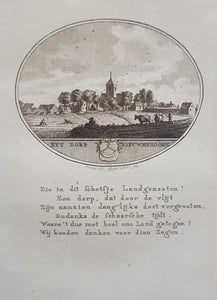 HET DORP NIEUWENHOORN
Zie in dit schetsje Landgenooten!
Een dorp, dat door de vlijt
Zijn aanzien daaglijks doet vergrooten,
Ondanks de schaarsche tijdt.
Waare 't dus met heel ons Land gelegen!
Wij konden danken voor dien Zegen.